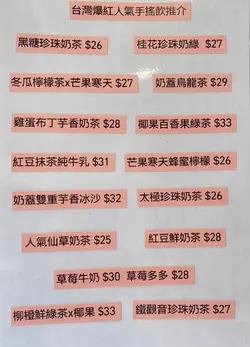 台灣爆紅人氣手搖飲推介
黑糖珍珠奶茶 $26 桂花珍珠奶綠 $27
冬瓜檸檬茶x芒果寒天 $27 奶蓋烏龍茶 $29
雞蛋布丁芋香奶茶 $28 椰果百香果綠茶 $33
紅豆抹茶純牛乳 $31 芒果寒天蜂蜜檸檬 $26
奶蓋雙重芋香冰沙 $32 太極珍珠奶茶 $26
人氣仙草奶茶 $25 紅豆鮮奶茶 $28
草莓牛奶 $30 草莓多多 $28
柳橙鮮綠茶x椰果 $33 鐵觀音珍珠奶茶 $27